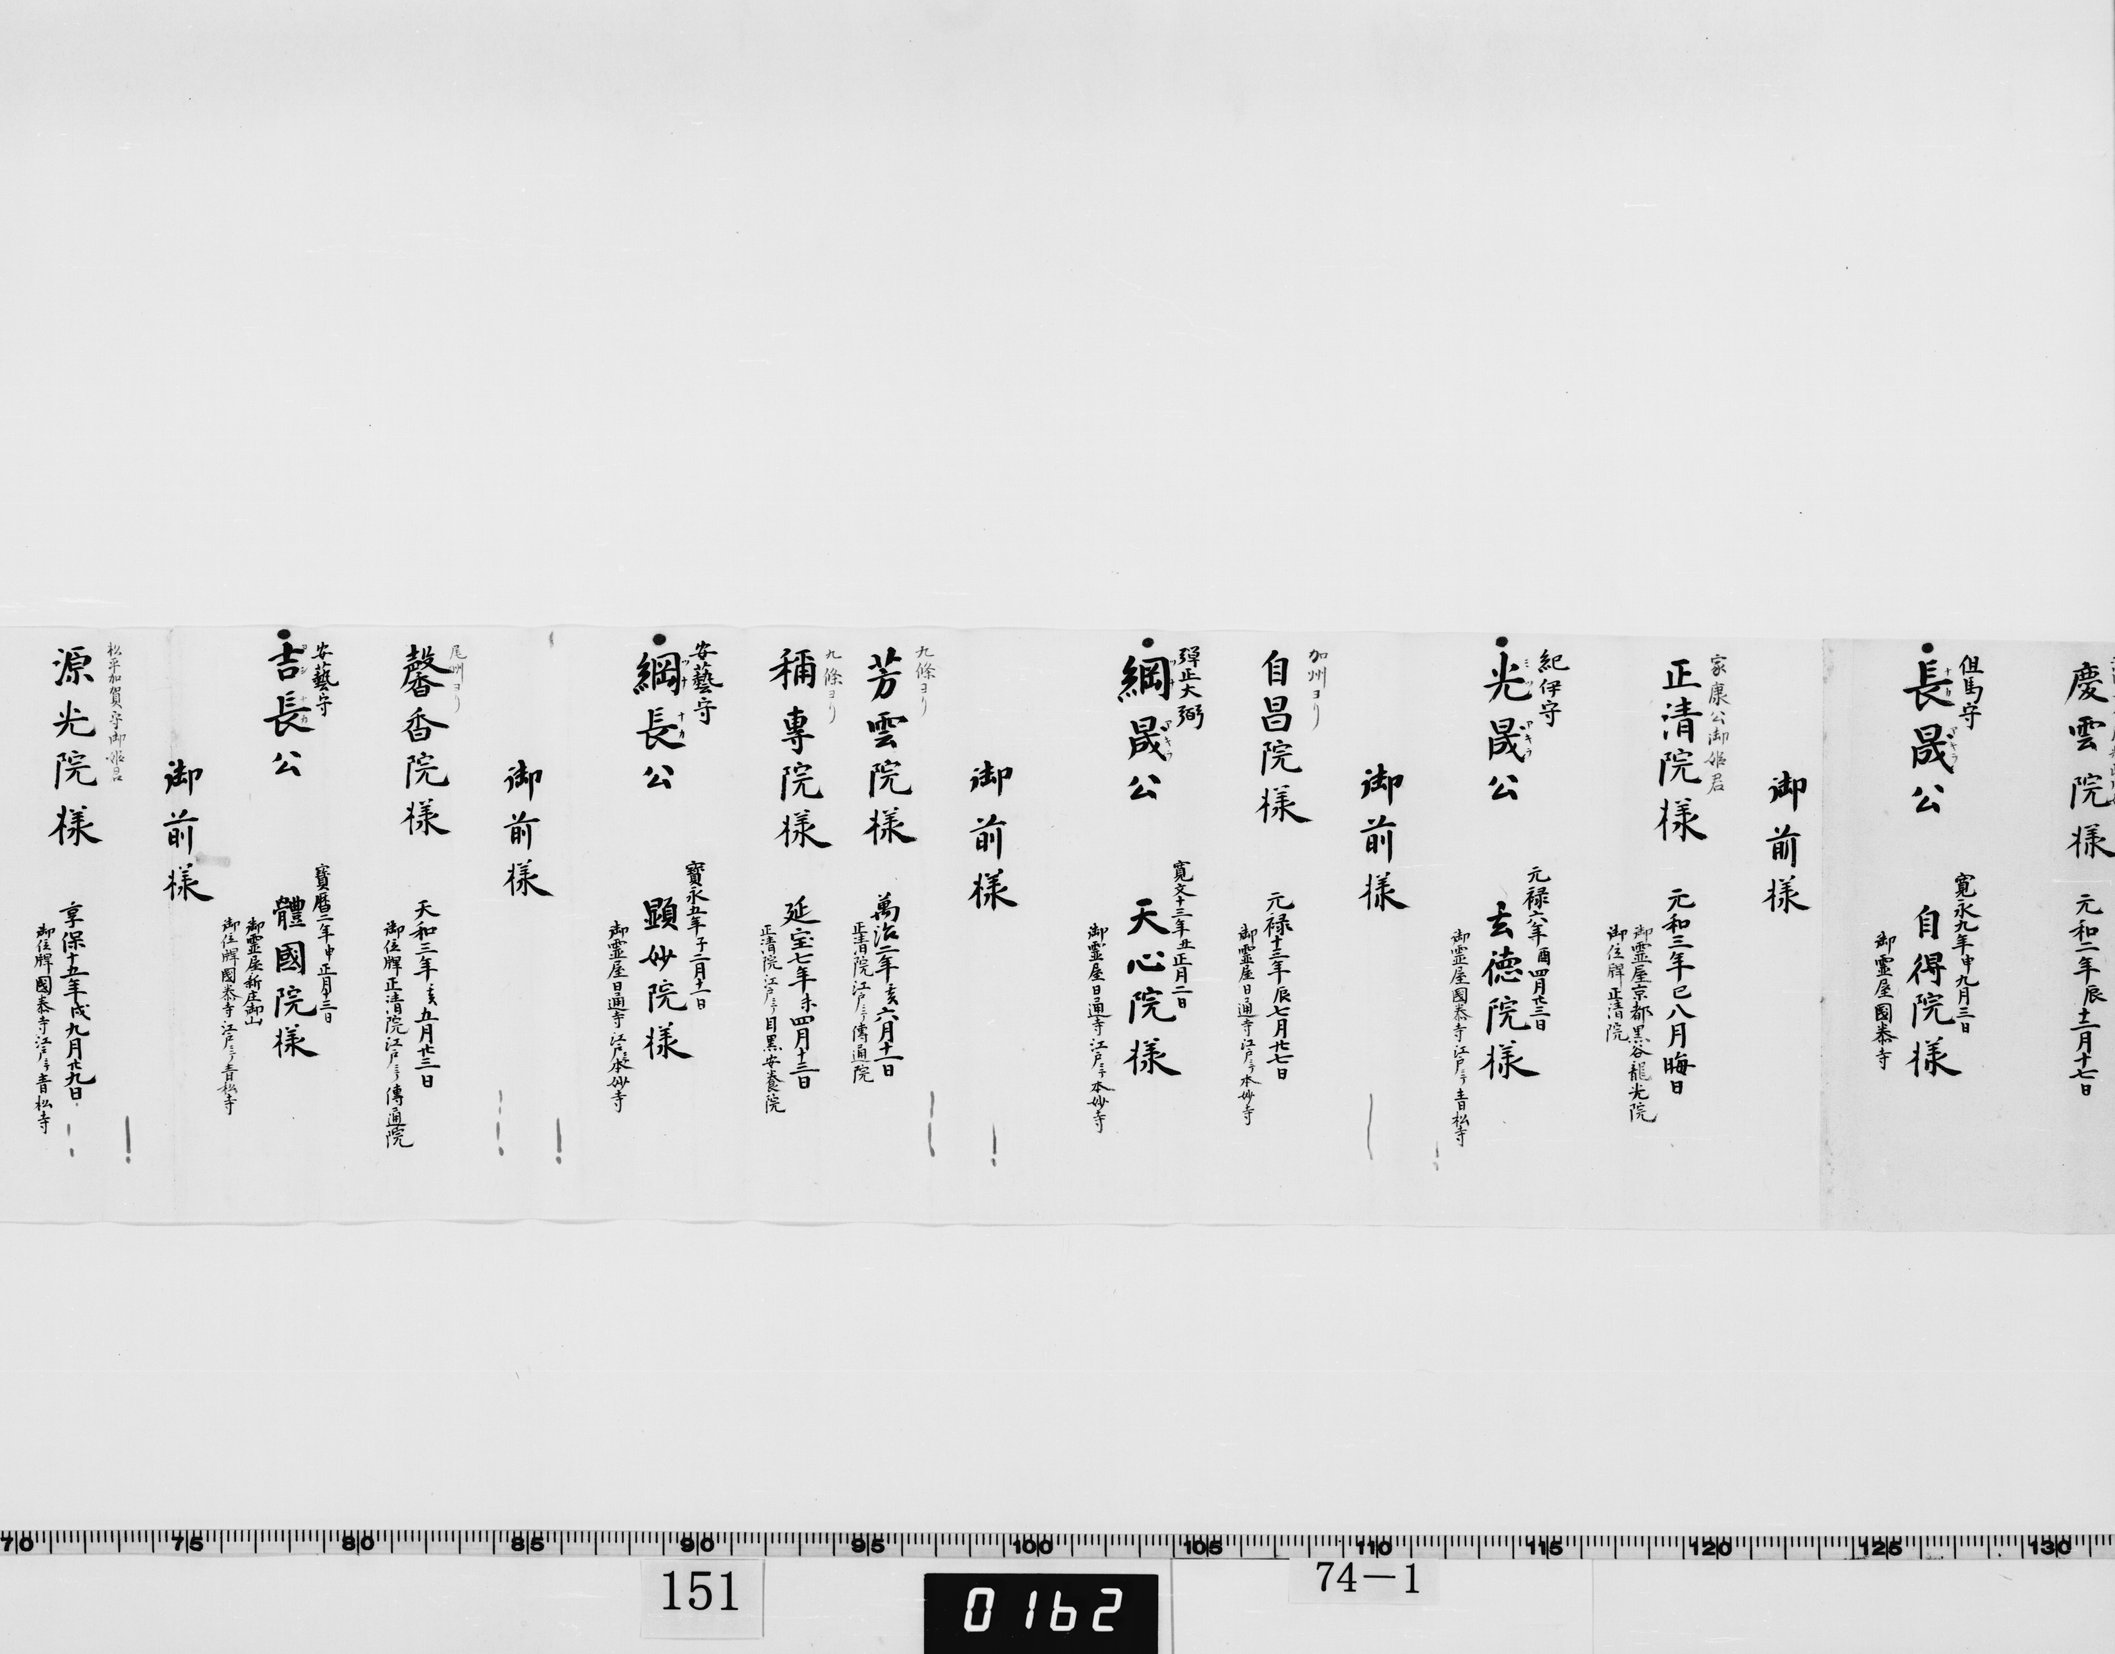 慶雲院様 元和二年辰十二月十七日
但馬守
長晟公
ナカアキラ
寛永九年申九月三日
自得院様
御霊屋國泰寺
御前様
家康公御姫君
正清院様 元和三年巳八月晦日
御霊屋京都黒谷龍光院
御位牌正清院
紀伊守
光晟公
ミツアキラ
元禄六年酉四月廿三日
玄徳院様
御霊屋國泰寺江戸ニテ青松寺
御前様
加州ヨリ
自昌院様 元禄十三年辰七月廿七日
御霊屋日通寺江戸ニテ本妙寺
弾正大弼
綱晟公
ツナアキラ
寛文十三年丑正月二日
天心院様
御霊屋日通寺江戸ニテ本妙寺
御前様
九條ヨリ
芳雲院様 萬治二年亥六月十一日
正清院江戸ニテ傳通院
九條ヨリ
稱專院様 延宝七年未四月十三日
正清院江戸ニテ目黒安養院
安藝守
綱長公
ツナナカ
寶永五年子二月十一日
顕妙院様
御霊屋日通寺江戸ニテ本妙寺
御前様
尾州ヨリ
馨香院様 天和三年亥五月廿三日
御位牌正清院江戸ニテ傳通院
安藝守
吉長公
ヨシナカ
寶暦二年申正月十三日
體國院様
御霊屋新庄御山
御位牌國泰寺江戸ニテ青松寺
御前様
松平加賀守御姫君
源光院様 享保十五年戌九月廿九日
御位牌國泰寺江戸ニテ青松寺
70 75 80 85 90 95 100 105 110 115 120 125 130
151
0162
74-1